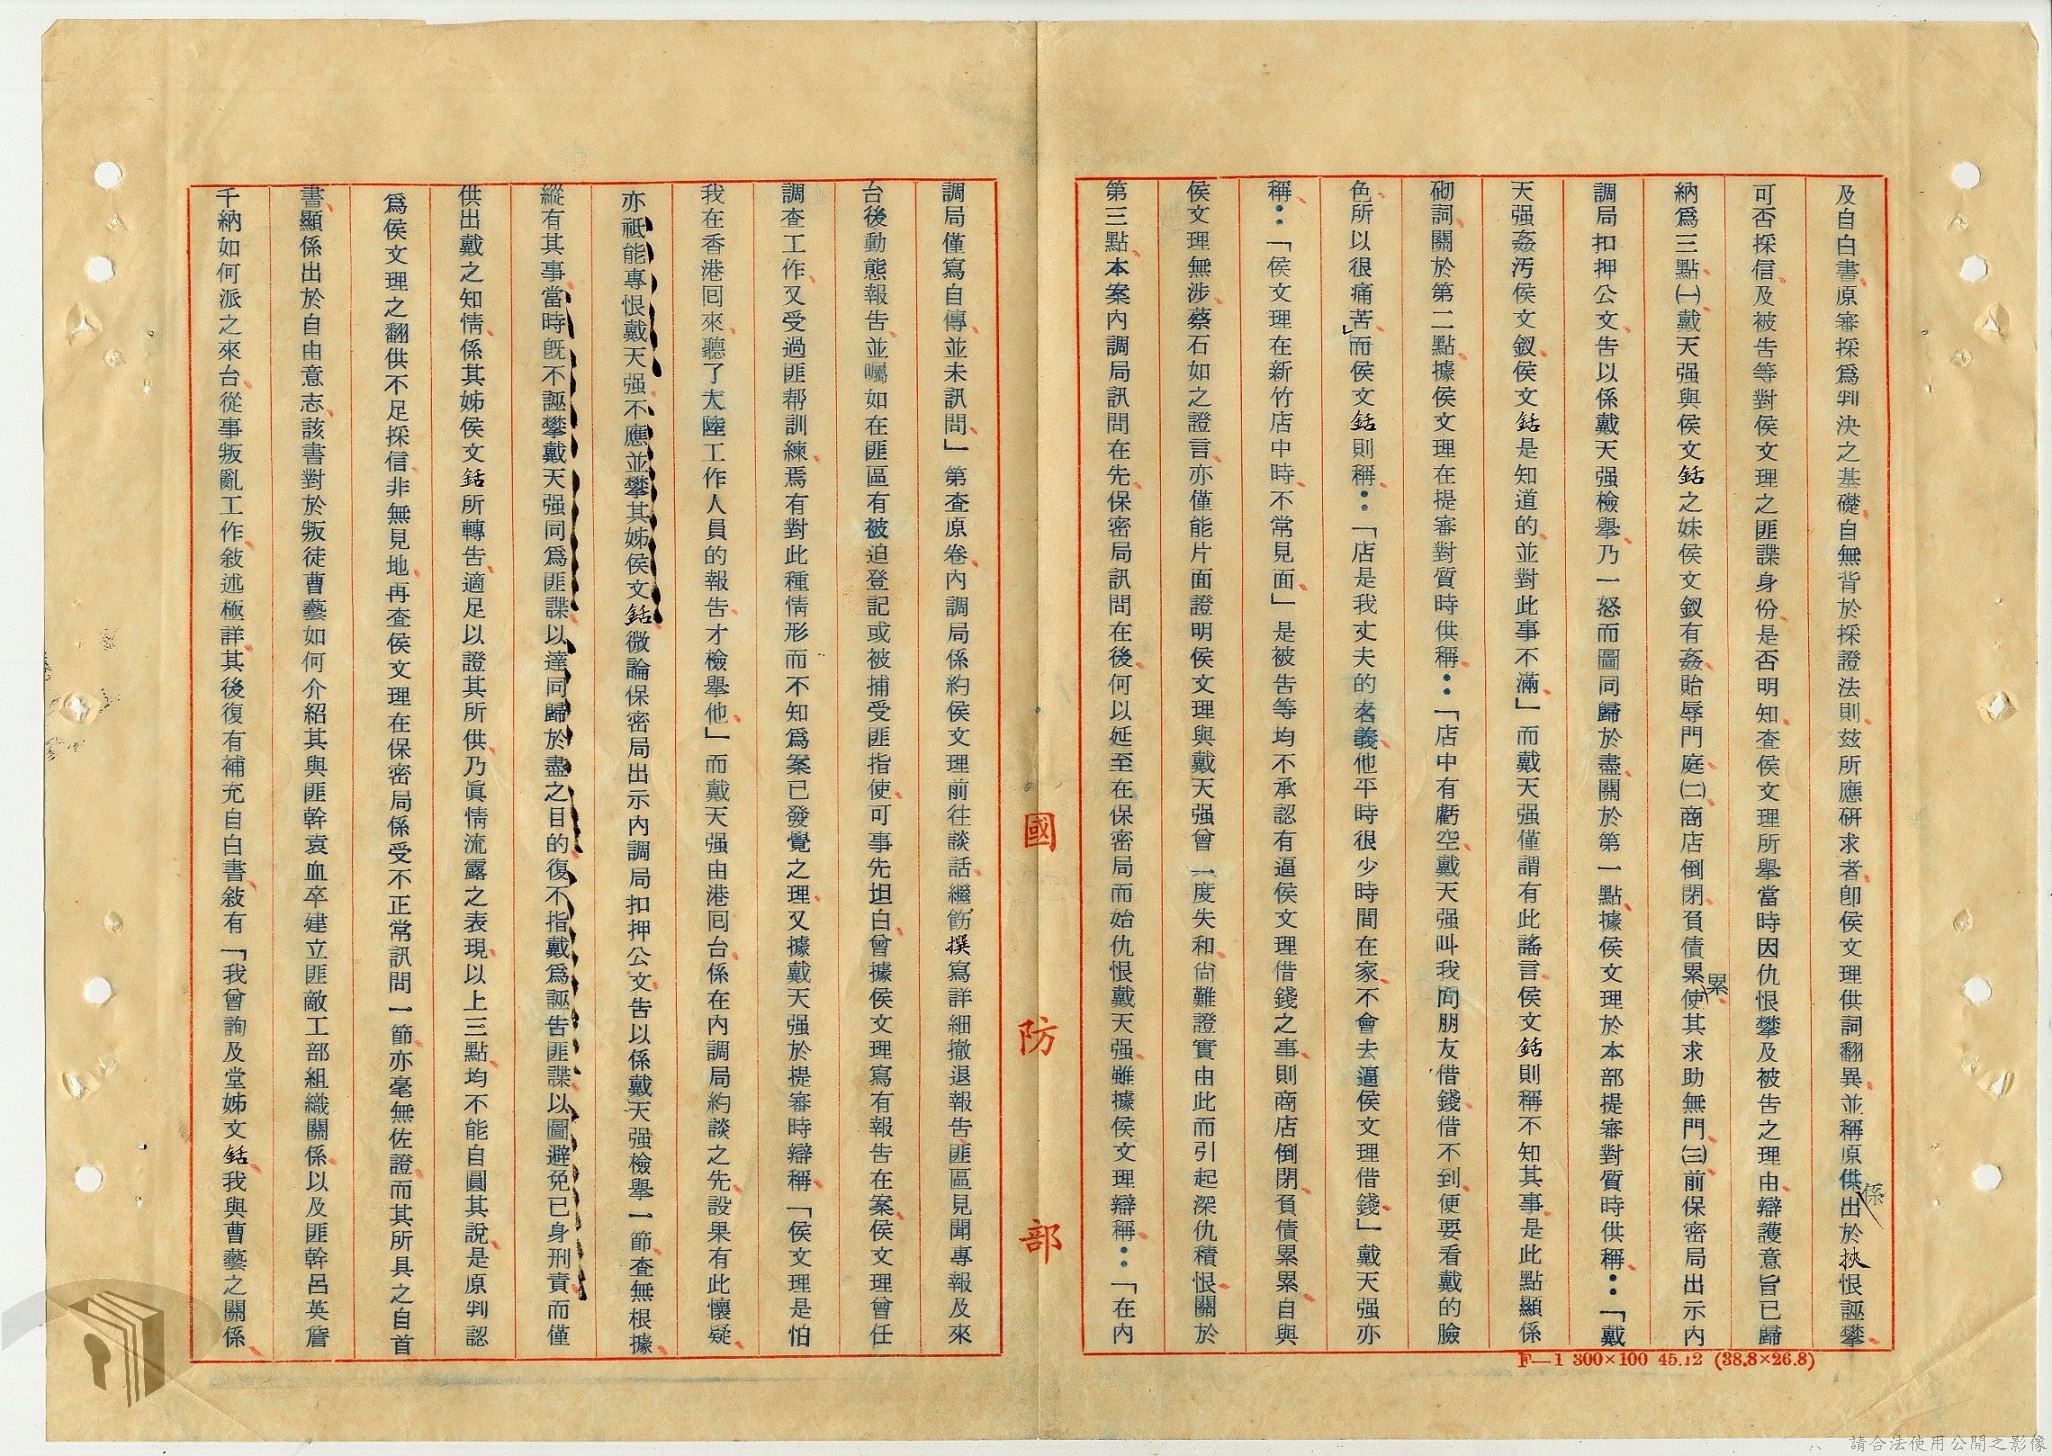 及自白書、原審採為判決之基礎、自無背於採證法則、玆所應研求者、卽侯文理供詞翻異、並稱原供係出於挾恨誣攀、
可否採信、及被告等對侯文理之匪諜身份、是否明知、查侯文理所舉當時因仇恨攀及被告之理由、辯護意旨已歸
納為三點、㈠戴天强與侯文銛之妹侯文釵有姦、貽辱門庭、㈡商店倒閉、負債累累、使其求助無門、㈢前保密局出示內
調局扣押公文、告以係戴天强檢舉、乃一怒而圖同歸於盡、關於第一點、據侯文理於本部提審對質時供稱：「戴
天强姦污侯文釵、侯文銛是知道的、並對此事不滿、」而戴天强僅謂有此謠言、侯文銛則稱不知其事、是此點顯係
砌詞、關於第二點、據侯文理在提審對質時供稱：「店中有虧空、戴天强叫我向朋友借錢、借不到便要看戴的臉
色、所以很痛苦」而侯文銛則稱：「店是我丈夫的名義、他平時很少時間在家、不會去逼侯文理借錢、」戴天强亦
稱：「侯文理在新竹店中時、不常見面、」是被告等均不承認有逼侯文理借錢之事、則商店倒閉、負債累累、自與
侯文理無涉、蔡石如之證言、亦僅能片面證明侯文理與戴天强曾一度失和、尙難證實由此而引起深仇積恨、關於
第三點、本案內調局訊問在先、保密局訊問在後、何以延至在保密局而始仇恨戴天强、雖據侯文理辯稱：「在內
國防部
F—1 300×100 45.12 (38.8×26.8)
調局僅寫自傳、並未訊問、」第查原卷內調局係約侯文理前往談話、繼飭撰寫詳細撤退報告、匪區見聞專報及來
台後動態報告、並囑如在匪區有被迫登記或被捕受匪指使、可事先坦白、曾據侯文理寫有報告在案、侯文理曾任
調查工作、又受過匪帮訓練、焉有對此種情形而不知為案已發覺之理、又據戴天强於提審時辯稱、「侯文理是怕
我在香港囘來、聽了大陸工作人員的報告、才檢舉他、」而戴天强由港囘台、係在內調局約談之先、設果有此懷疑、
亦祇能專恨戴天强、不應並攀其姊侯文銛、微論保密局出示內調局扣押公文、告以係戴天强檢舉一節、查無根據、
縱有其事、當時旣不誣攀戴天强同為匪諜、以達同歸於盡之目的、復不指戴為誣告匪諜、以圖避免已身刑責、而僅
供出戴之知情、係其姊侯文銛所轉告、適足以證其所供、乃眞情流露之表現、以上三點、均不能自圓其說、是原判認
為侯文理之翻供不足採信、非無見地、再查侯文理在保密局係受不正常訊問一節、亦毫無佐證、而其所具之自首
書、顯係出於自由意志、該書對於叛徒曹藝如何介紹其與匪幹袁血卒建立匪敵工部組織關係、以及匪幹呂英詹
千納如何派之來台、從事叛亂工作、敍述極詳、其後復有補充自白書、敍有「我曾詢及堂姊文銛、我與曹藝之關係、
請合法使用公開之影像